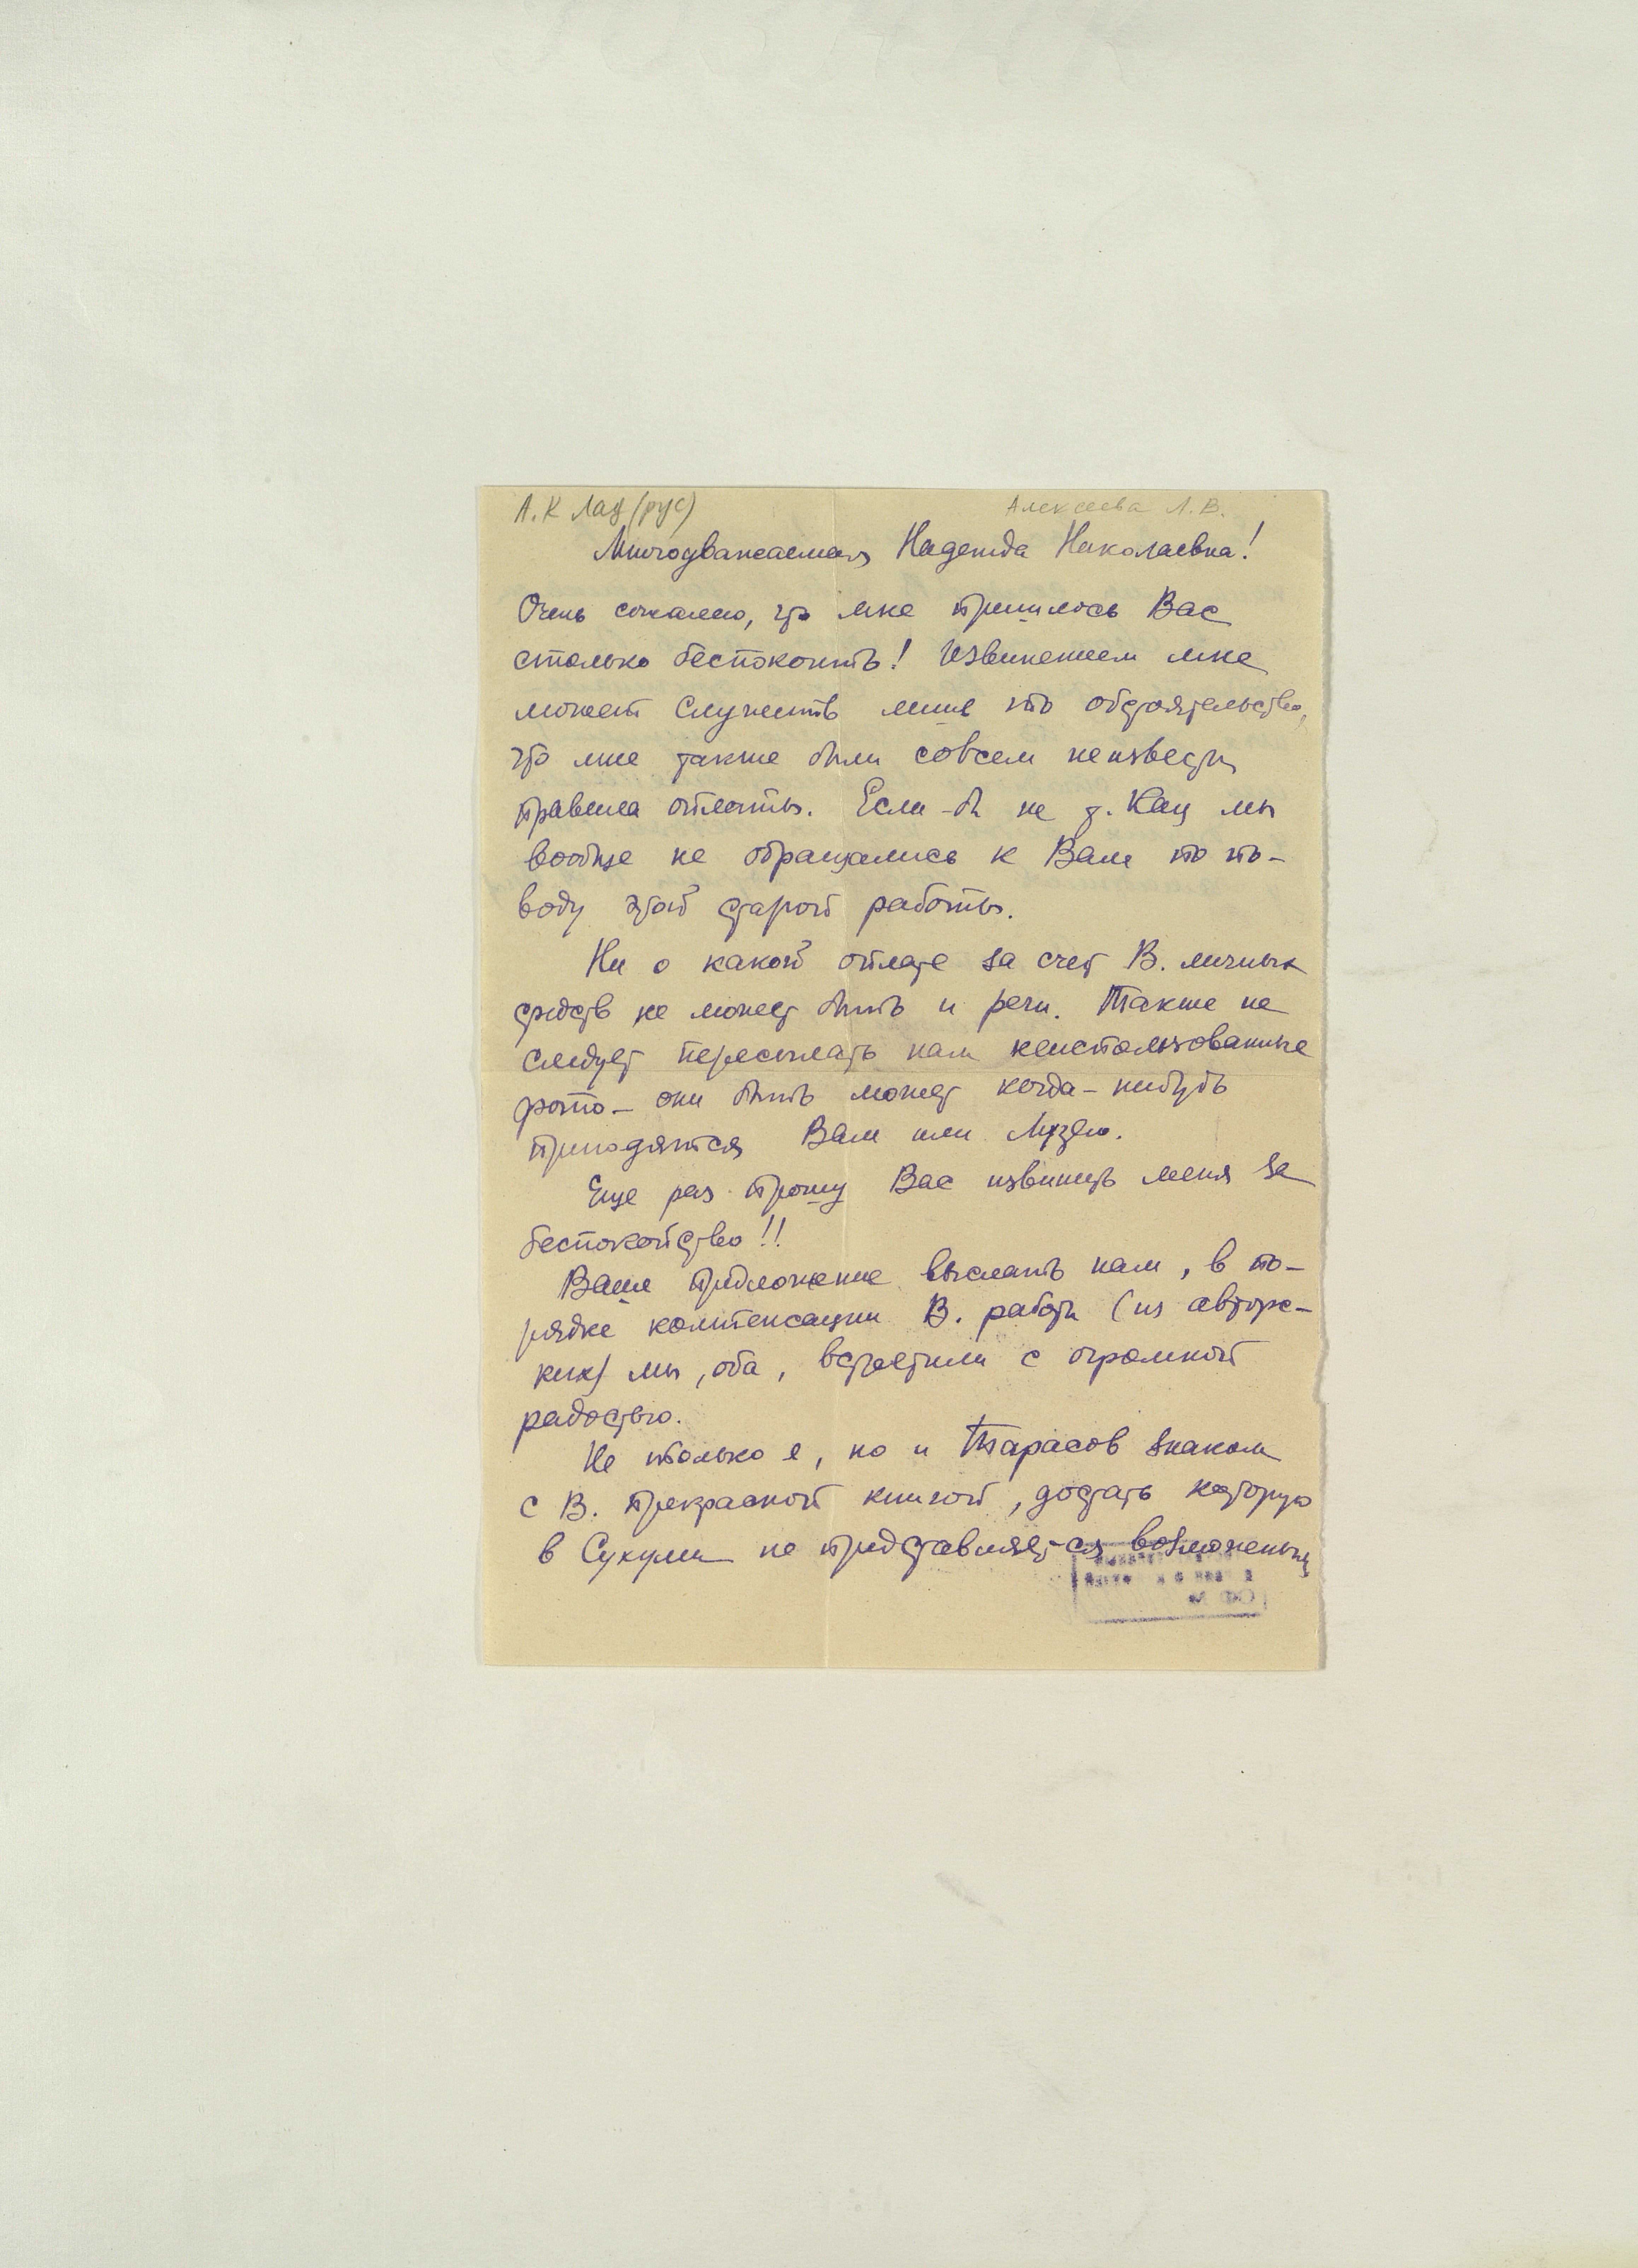 А.К Лад (рус)
Алексеева Л.В.
Многоуважаемая Надежда Николаевна!
Очень сожалею, что мне пришлось Вас
столько беспокоить! Извинением мне
может служить лишь то обстоятельство,
что мне также были совсем неизвестны
правила оплаты. Если-б не т. Кац мы
вообще не обращались к Вам по по-
воду этой старой работы.
Ни о какой оплате за счет В. личных
средств не может быть и речи. Также не
следует пересылать нам неиспользованные
фото – они быть может когда-нибудь
пригодятся Вам или Музею.
Еще раз прошу Вас извинить меня за
беспокойство!!
Ваше предложение выслать нам, в по-
рядке компенсации В. работы (из авторс-
ких) мы, оба, встретили с огромной
радостью.
Не только я, но и Тарасов знаком
с В. прекрасной книгой, достать которую
в Сухуми не представляется возможным